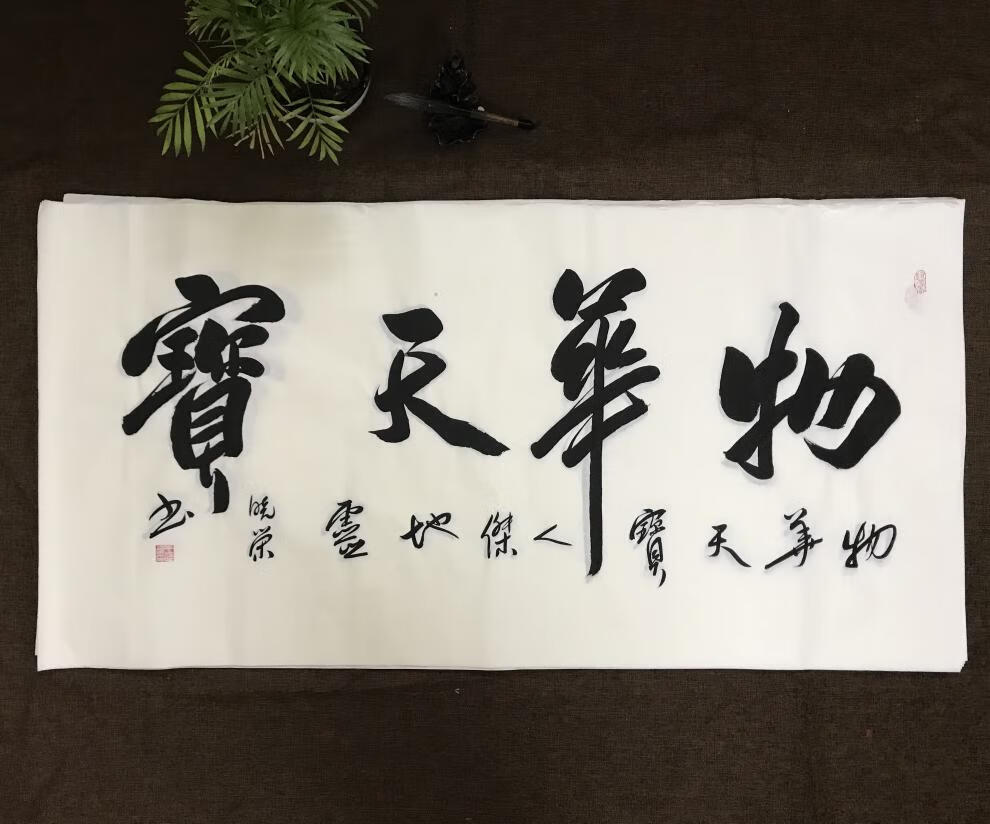 物華天寶
物華天寶人傑地靈
曉榮
书